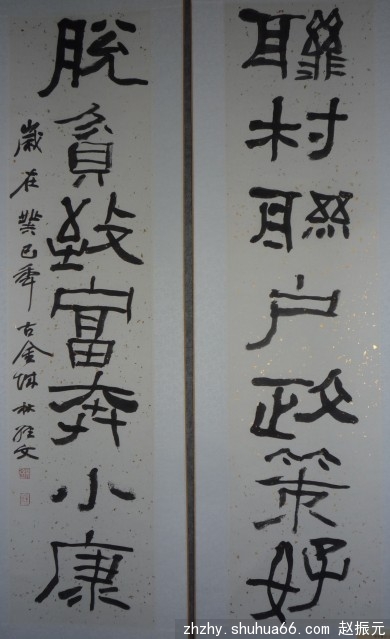 聯村聯户政策好
脱貧致富奔小康
歲在癸巳年古金城林经文
zhzhy.shuhua66.com 赵振元